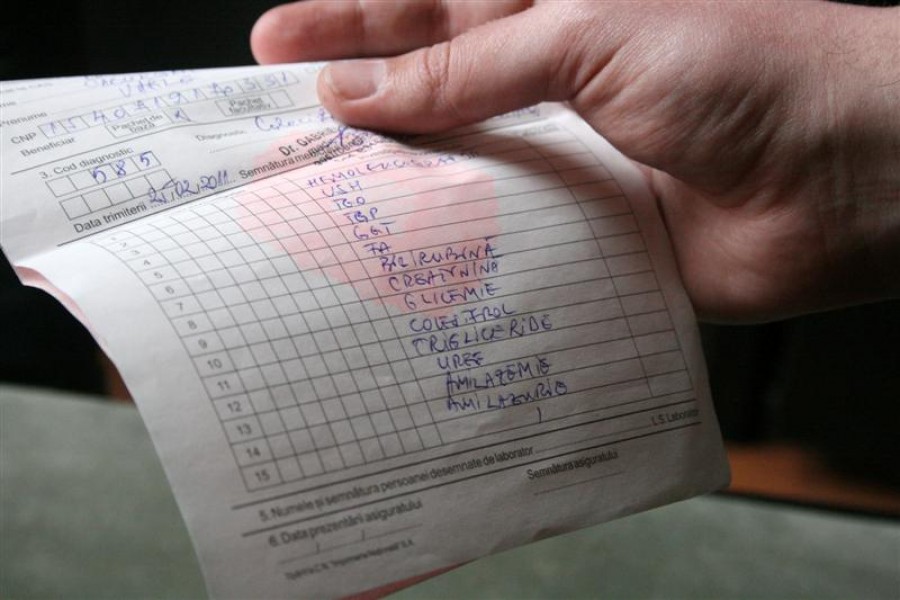 Prenume
CNP
Beneficiar
Pachet de bază
Pachet facultativ
Diagnostic
3. Cod diagnostic
585
Data trimiterii 25.02.2011
Semnătura
HEMOLEUCOGRAMA
VSH
TGO
TGP
GGT
FA
BILIRUBINĂ
CREATININA
GLICEMIE
COLESTEROL
TRIGLICERIDE
UREE
AMILAZEMIE
AMILAZURIE
2
3
4
5
6
7
8
9
10
11
12
13
14
15
5. Numele și semnătura persoanei desemnate de laborator
L.S. Laborator
Semnătura asiguratului
6. Data prezentării asiguratului